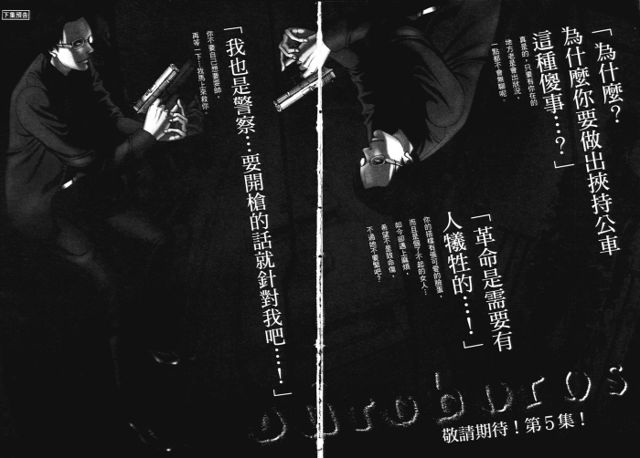 下集預告
「為什麼?
為什麼你要做出挾持公車
這種傻事…?」
真是的,只要有你在的
地方老是會出狀況,
一點都不會無聊呢。
「革命是需要有
人犧牲的…!」
你的搭檔有張可愛的臉蛋,
而且是個了不起的女人…
如今卻遇上麻煩,
希望不是致命傷,
不過她不要緊吧?
「我也是警察…要開槍的話就針對我吧…!」
你不要自己想要耍帥,
再等一下…我馬上來救你。
ouroboros
敬請期待!第5集!